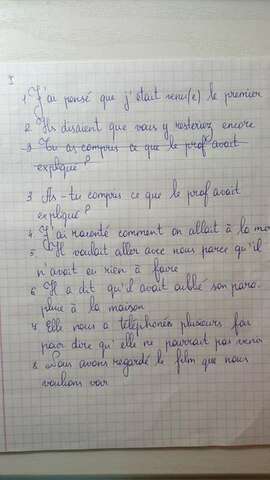 I
1. J'ai pensé que j'était venu(e) le premier
2. Ils disaient que vous y resteriez encore
3. Tu as compris ce que le prof avait
expliqué?
3. As-tu compris ce que le prof avait
expliqué?
4. J'ai raconté comment on allait à la mer
5. Il voulait aller avec nous parce qu'il
n'avait eu rien à faire
6. Il a dit qu'il avait oublié son para
pluie à la maison
7. Elle nous a téléphonés plusieurs fois
pour dire qu'elle ne pourrait pas venir
8. Nous avons regardé le film que nous
voulions voir